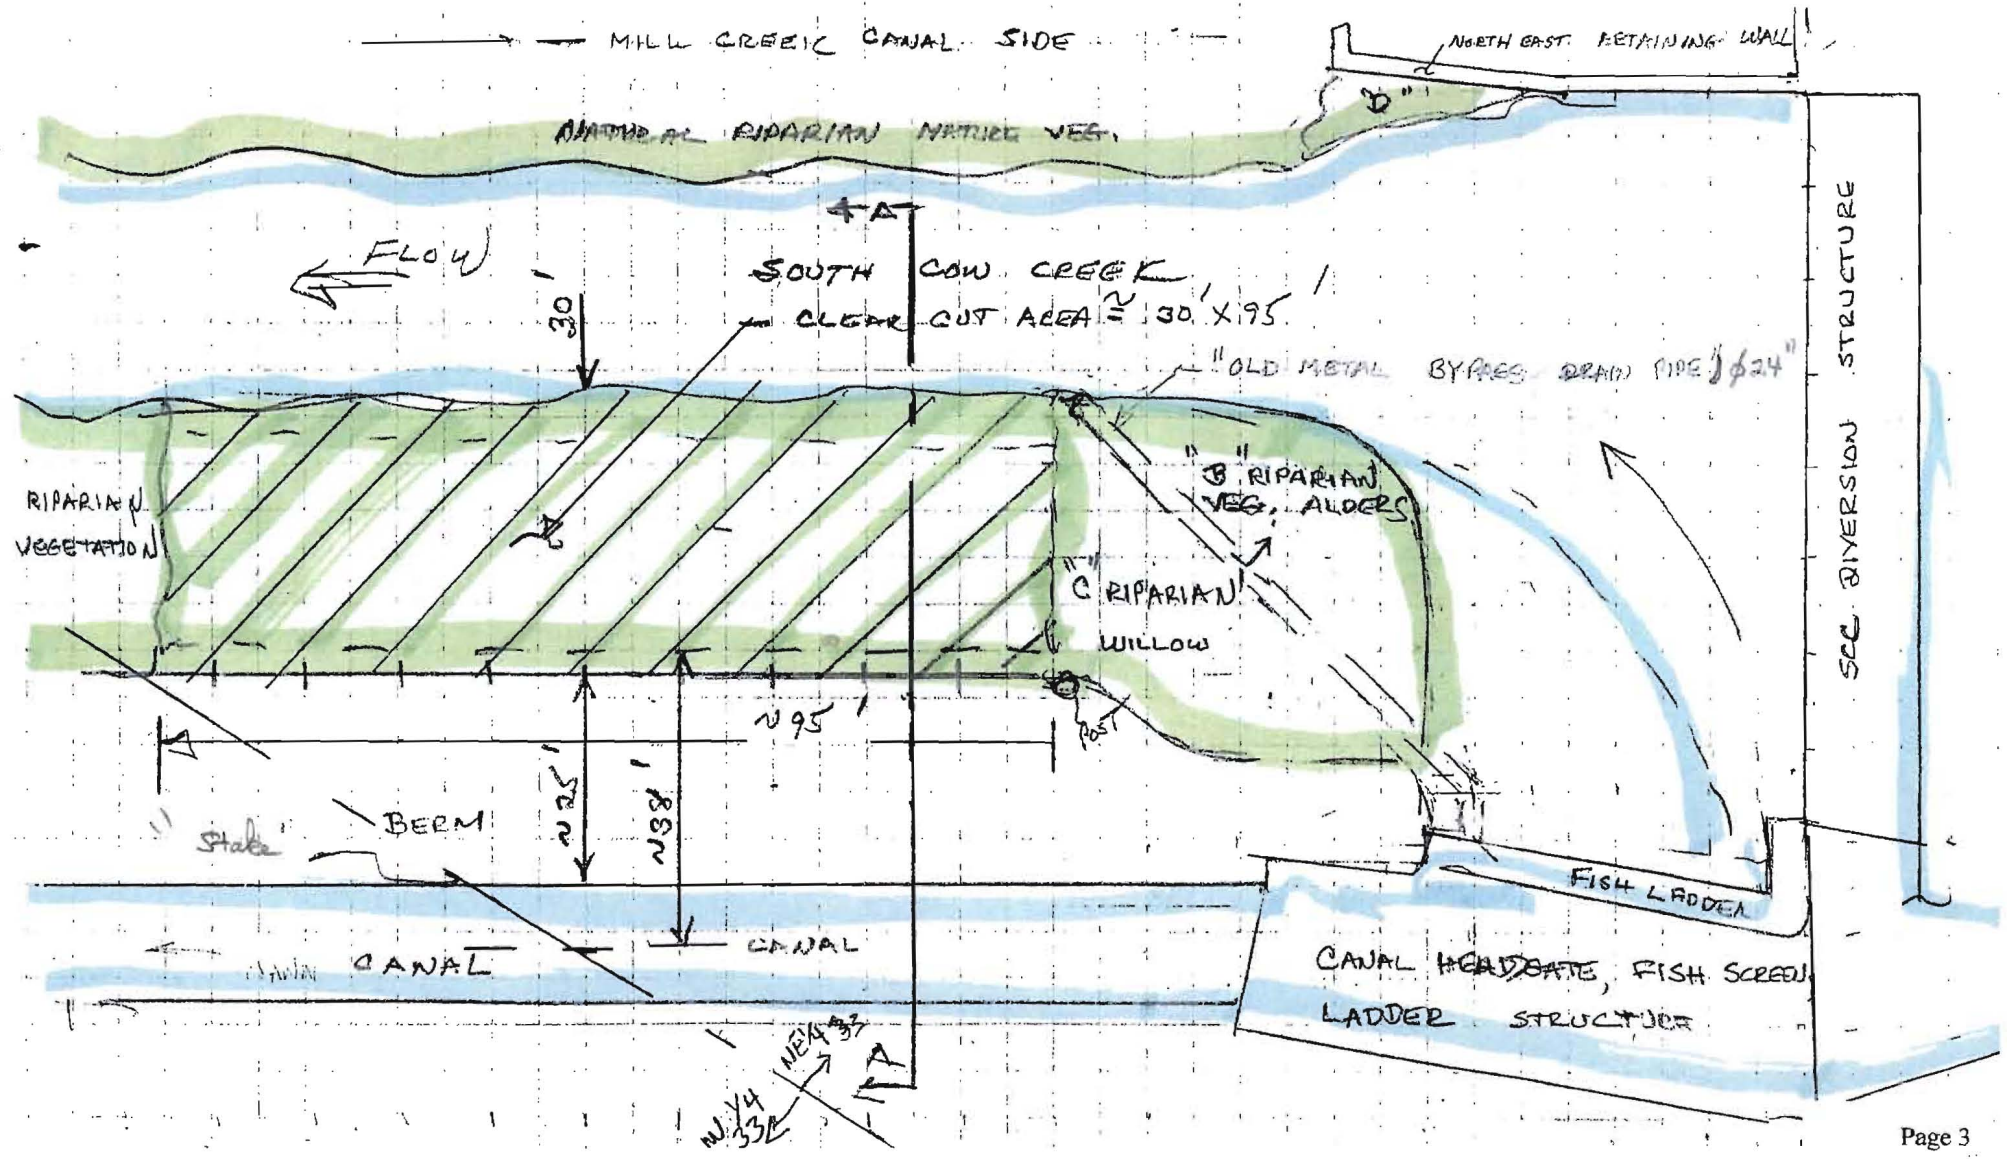 MILL CREEK CANAL SIDE
NORTH EAST RETAINING WALL
"B"
RIPARIAN MATURE VEG.
A
FLOW
SOUTH COW CREEK
CLEAR CUT AREA ≅ 30' X 95'
30'
"OLD METAL BYPASS DRAIN PIPE" ϕ24"
SCC DIVERSION STRUCTURE
"B" RIPARIAN
VEG. ALDERS
RIPARIAN
VEGETATION
"C" RIPARIAN
WILLOW
~95'
POST
~25'
~38'
BERM
"Stake"
FISH LADDER
CANAL
CANAL
CANAL HEADGATE, FISH SCREEN
LADDER STRUCTURE
NE 1/4 33
A
NW 1/4
33
Page 3